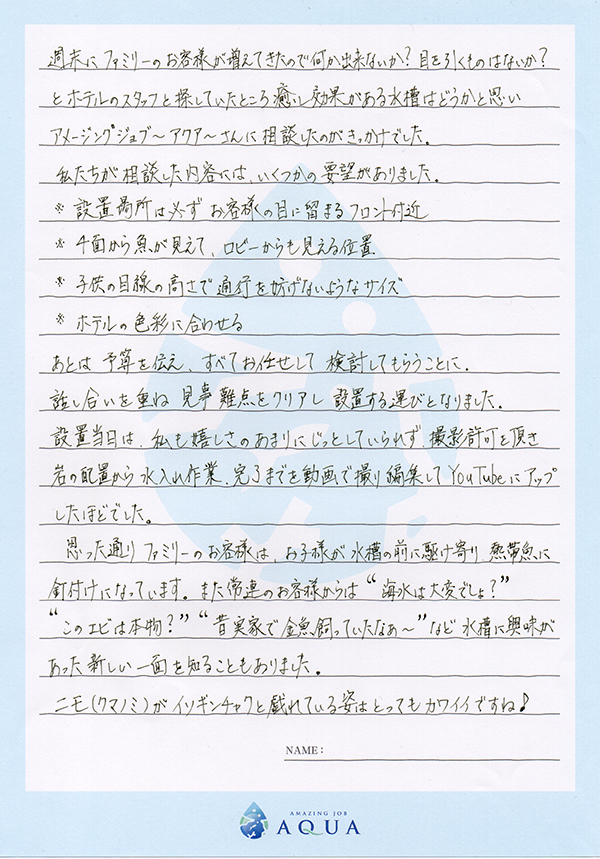 週末に ファミリーのお客様が増えてきたので何か出来ないか？目を引くものはないか？
とホテルのスタッフと探していたところ 癒し効果がある水槽はどうかと思い
アメージングジョブ～アクア～さんに相談したのがきっかけでした。
私たちが相談した内容には、いくつかの要望がありました。
※ 設置場所は必ずお客様の目に留まるフロント付近
※ 4面から魚が見えて、ロビーからも見える位置
※ 子供の目線の高さで通行を妨げないようなサイズ
※ ホテルの色彩に合わせる
あとは 予算を伝え、すべてお任せして 検討してもらうことに.
話し合いを重ね 見事 難点をクリアし 設置する運びとなりました.
設置当日は、私も嬉しさのあまりにじっとしていられず 撮影許可を頂き
岩の配置から 水入れ作業、完了までを動画で撮り編集してYouTubeにアップ
したほどでした。
思った通り ファミリーのお客様は、お子様が水槽の前に駆け寄り 熱帯魚に
釘付けになっています。また常連のお客様からは "海水は大変でしょ？"
"このエビは本物？" "昔実家で金魚飼っていたなあ～" など 水槽に興味が
あった新しい一面を知ることもありました。
ニモ(クマノミ)がイソギンチャクと戯れている姿はとってもカワイイですね♪
NAME:
AMAZING JOB
AQUA